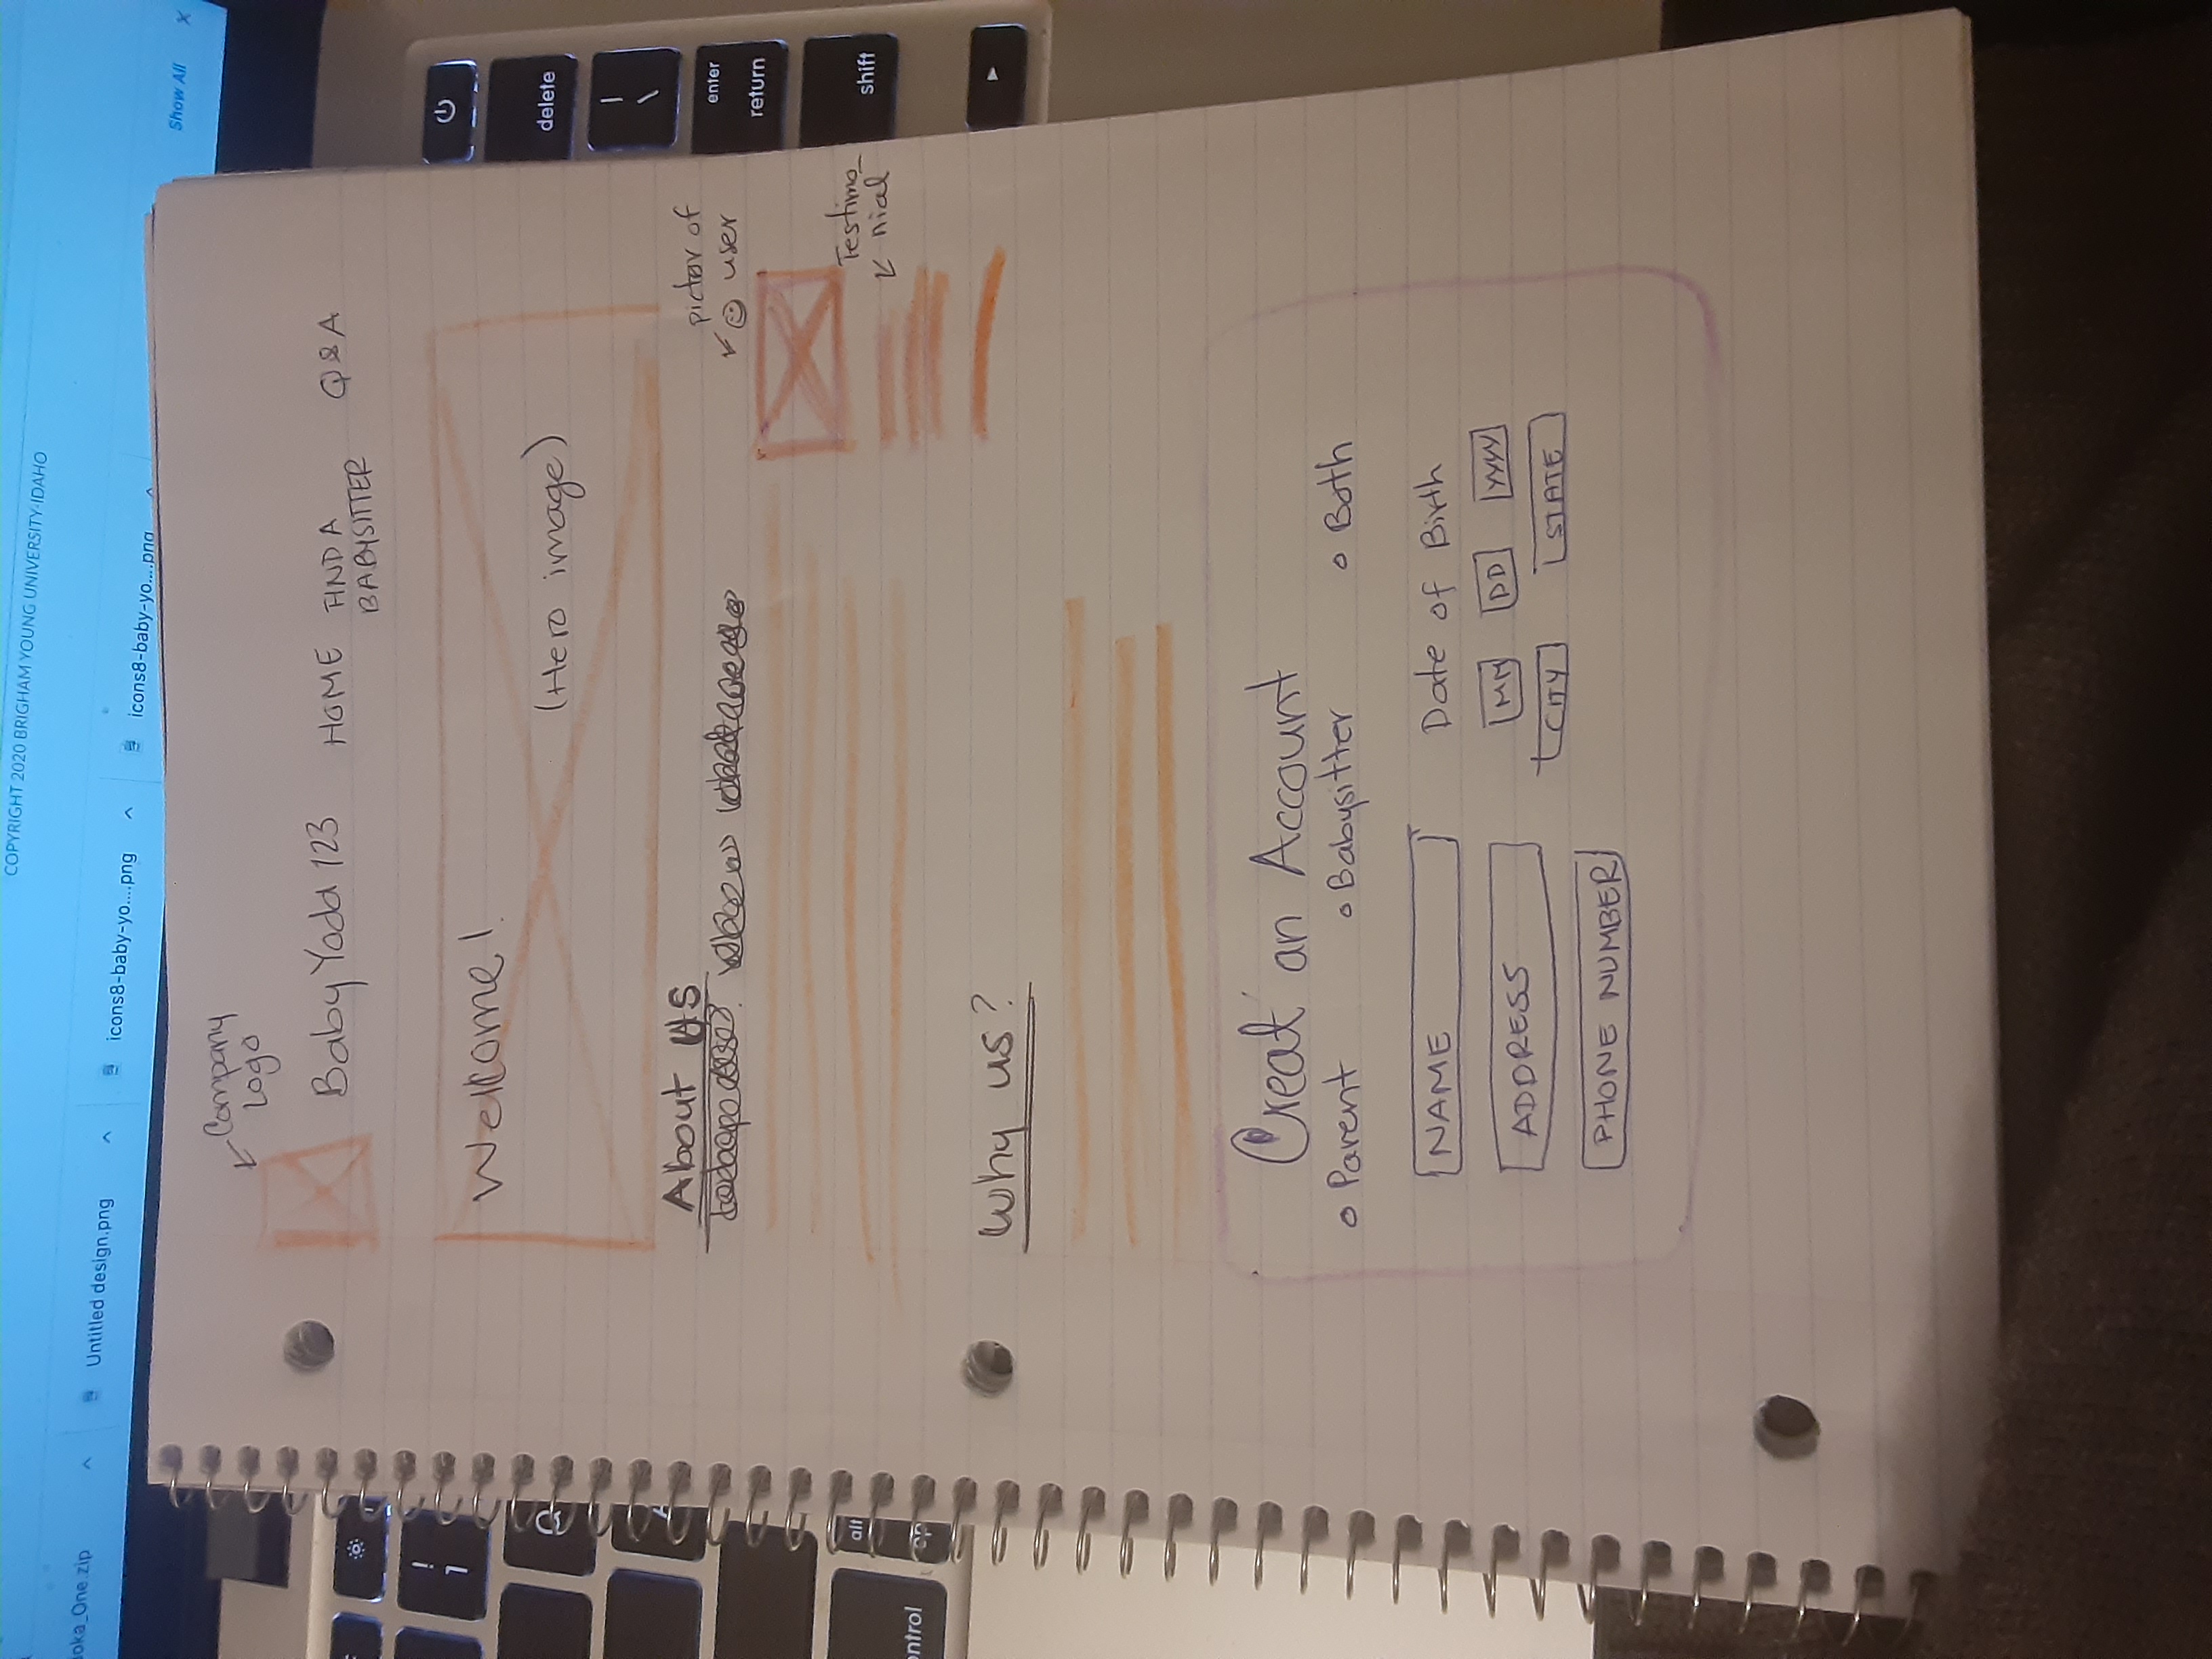 COPYRIGHT 2020 BRIGHAM YOUNG UNIVERSITY-IDAHO
oka_One.zip
Untitled design.png
icons8-baby-yo....png
icons8-baby-yo....png
Show All
Company
Logo
Baby Yoda 123
HOME
FIND A
BABYSITTER
Q&A
Welcome!
(Hero image)
About US
pictor of
user
Testimo_
nial
Why us?
Creat an Account
Parent
Babysitter
Both
NAME
Date of Birth
MM
DD
YYYY
ADDRESS
CITY
STATE
PHONE NUMBER
!
1
Q
A
alt
op
ontrol
delete
|
\
enter
return
shift